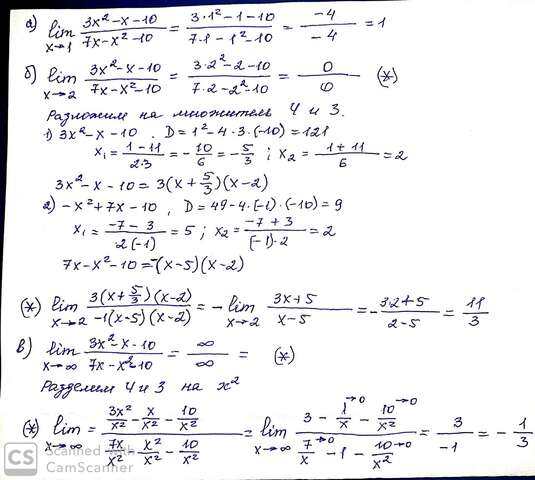 а) lim x→1 (3x²-x-10)/(7x-x²-10) = (3·1²-1-10)/(7·1-1²-10) = (-4)/(-4) = 1
б) lim x→2 (3x²-x-10)/(7x-x²-10) = (3·2²-2-10)/(7·2-2²-10) = 0/0 (*)
Разложим на множитель Ч и З.
1) 3x²-x-10 . D=1²-4·3·(-10)=121
x₁ = (1-11)/(2·3) = -10/6 = -5/3 ; x₂ = (1+11)/6 = 2
3x²-x-10 = 3(x+5/3)(x-2)
2) -x²+7x-10 , D=49-4·(-1)·(-10)=9
x₁ = (-7-3)/(2(-1)) = 5 ; x₂ = (-7+3)/((-1)·2) = 2
7x-x²-10 = -(x-5)(x-2)
(*) lim x→2 (3(x+5/3)(x-2))/(-1(x-5)(x-2)) = - lim x→2 (3x+5)/(x-5) = -(3·2+5)/(2-5) = 11/3
в) lim x→∞ (3x²-x-10)/(7x-x²-10) = ∞/∞ = (*)
Разделим Ч и З на x²
(*) lim x→∞ = (3x²/x² - x/x² - 10/x²)/(7x/x² - x²/x² - 10/x²) = lim x→∞ (3 - 1/x→0 - 10/x²→0)/(7/x→0 - 1 - 10/x²→0) = 3/-1 = -1/3
CS Scanned with
CamScanner